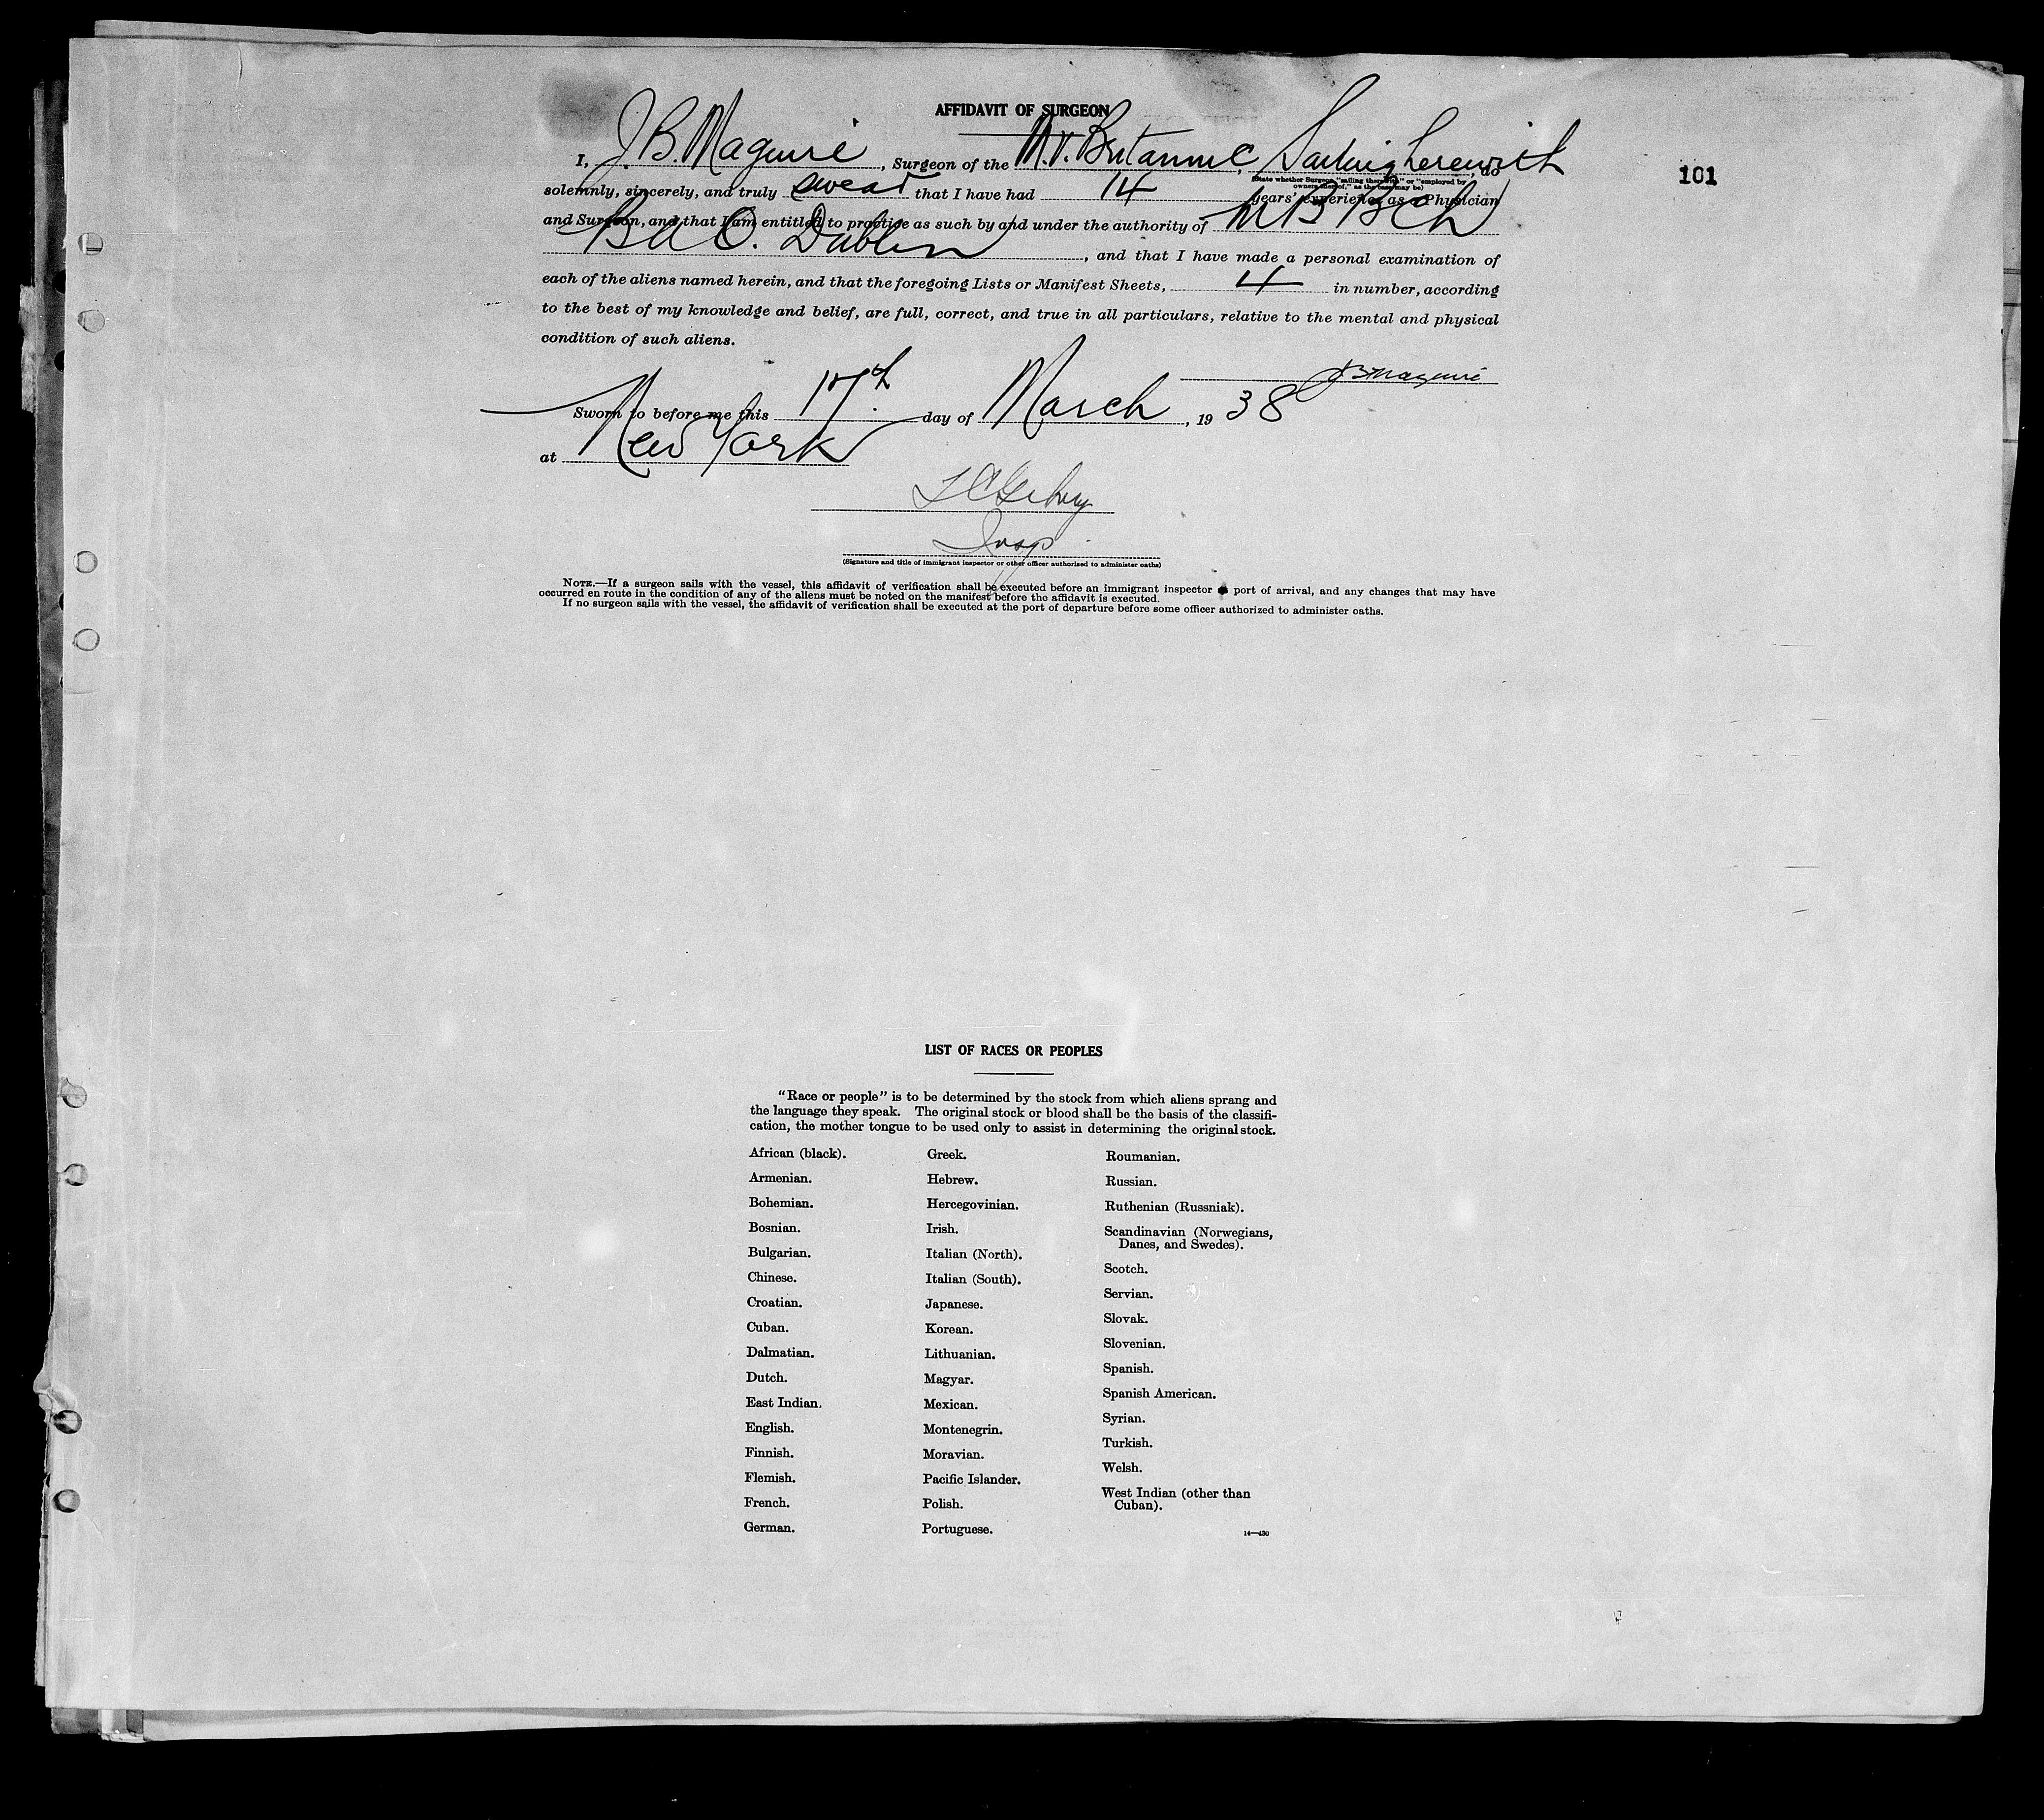 AFFIDAVIT OF SURGEON
I, J. B. Maguire, Surgeon of the M.V. Britannic, Sailing herewith, do
(State whether Surgeon "sailing therewith" or "employed by
owners thereof," as the case may be)
101
solemnly, sincerely, and truly swear that I have had 14 years' experience as a Physician
and Surgeon, and that I am entitled to practice as such by and under the authority of M B B Ch
B A O. Dublin, and that I have made a personal examination of
each of the aliens named herein, and that the foregoing Lists or Manifest Sheets, 4 in number, according
to the best of my knowledge and belief, are full, correct, and true in all particulars, relative to the mental and physical
condition of such aliens.
J B Maguire
Sworn to before me this 17th day of March, 1938
at New York
Insp.
(Signature and title of immigrant inspector or other officer authorized to administer oaths)
NOTE.—If a surgeon sails with the vessel, this affidavit of verification shall be executed before an immigrant inspector port of arrival, and any changes that may have
occurred en route in the condition of any of the aliens must be noted on the manifest before the affidavit is executed.
If no surgeon sails with the vessel, the affidavit of verification shall be executed at the port of departure before some officer authorized to administer oaths.
LIST OF RACES OR PEOPLES
"Race or people" is to be determined by the stock from which aliens sprang and
the language they speak. The original stock or blood shall be the basis of the classifi-
cation, the mother tongue to be used only to assist in determining the original stock.
African (black).
Armenian.
Bohemian.
Bosnian.
Bulgarian.
Chinese.
Croatian.
Cuban.
Dalmatian.
Dutch.
East Indian.
English.
Finnish.
Flemish.
French.
German.
Greek.
Hebrew.
Hercegovinian.
Irish.
Italian (North).
Italian (South).
Japanese.
Korean.
Lithuanian.
Magyar.
Mexican.
Montenegrin.
Moravian.
Pacific Islander.
Polish.
Portuguese.
Roumanian.
Russian.
Ruthenian (Russniak).
Scandinavian (Norwegians,
Danes, and Swedes).
Scotch.
Servian.
Slovak.
Slovenian.
Spanish.
Spanish American.
Syrian.
Turkish.
Welsh.
West Indian (other than
Cuban).
14—430